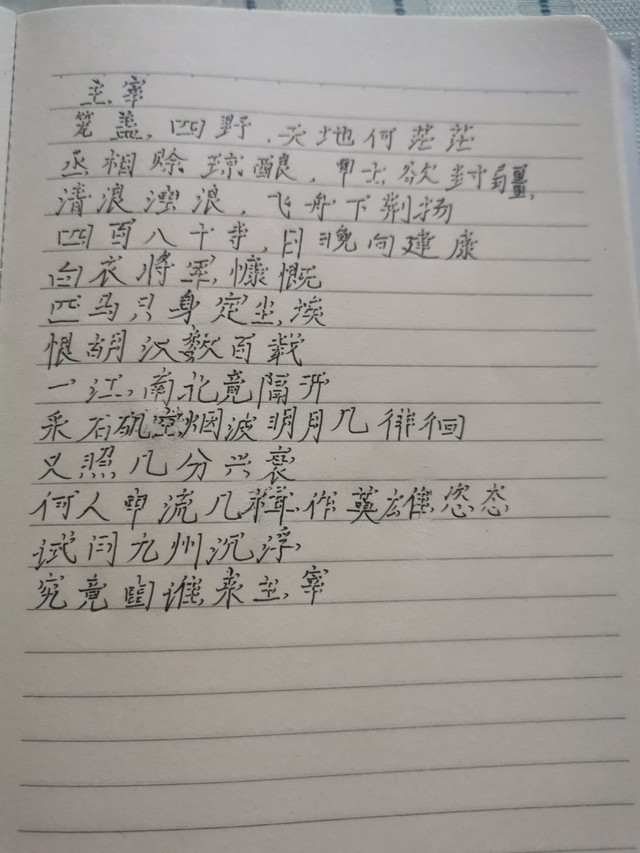 主宰
笼盖四野，天地何茫茫
丞相赊琼酿，甲士欲封疆，
清浪浊浪，飞舟下荆扬
四百八十寺，日晚向建康
白衣将军，慷慨
匹马只身定尘埃
恨胡汉数百载
一江，南北竟隔开
采石矶空烟波明月几徘徊
又照几分兴衰
何人中流几楫，作英雄姿态
试问九州沉浮，
究竟由谁来主宰